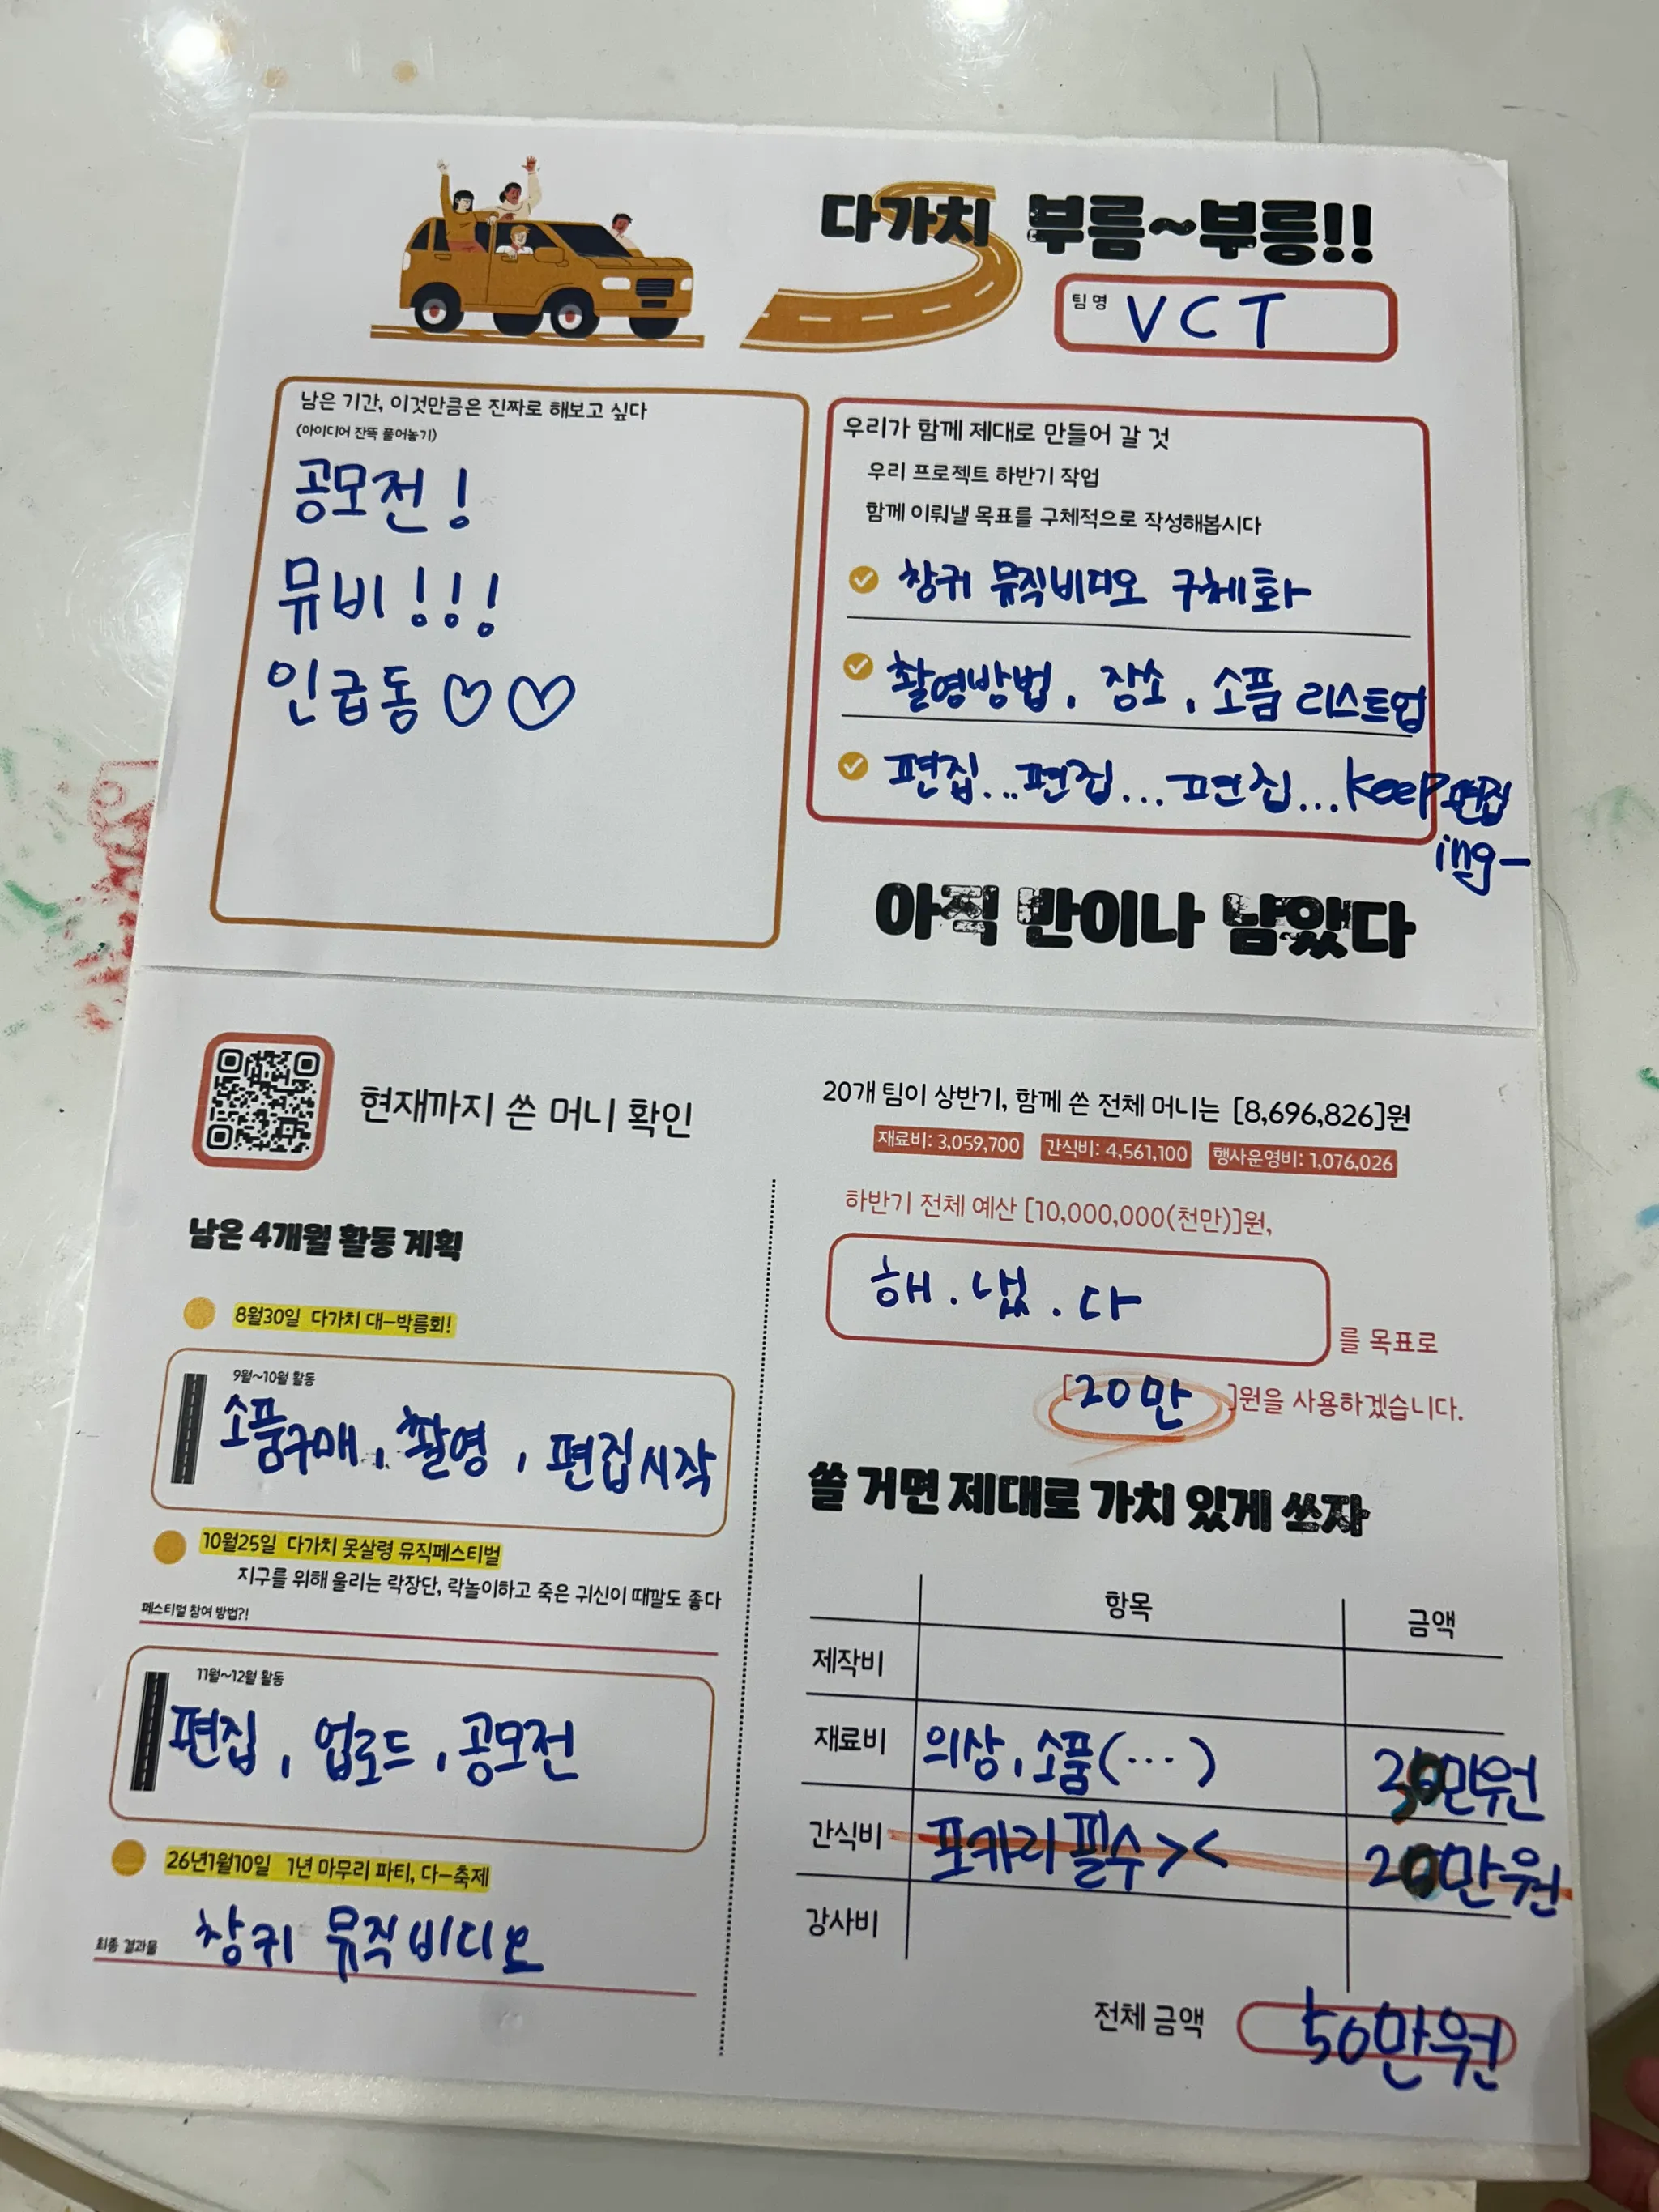 다가치 부름~부릉!!
팀명 VCT
남은 기간, 이것만큼은 진짜로 해보고 싶다
(아이디어 잔뜩 풀어놓기)
공모전!
뮤비!!!
인급동♡♡
우리가 함께 제대로 만들어 갈 것
우리 프로젝트 하반기 작업
함께 이뤄낼 목표를 구체적으로 작성해봅시다
창귀 뮤직비디오 구체화
촬영방법, 장소, 소품 리스트업
편집...편집...편집...keep편집
ing-
아직 반이나 남았다
현재까지 쓴 머니 확인
남은 4개월 활동 계획
8월30일 다가치 대-박름회!
9월~10월 활동
소품구매, 촬영, 편집시작
10월25일 다가치 못살령 뮤직페스티벌
지구를 위해 울리는 락장단, 락놀이하고 죽은 귀신이 때깔도 좋다
페스티벌 참여 방법?!
11월~12월 활동
편집, 업로드, 공모전
26년1월10일 1년 마무리 파티, 다-축제
최종 결과물 창귀 뮤직비디오
20개 팀이 상반기, 함께 쓴 전체 머니는 [8,696,826]원
재료비: 3,059,700 간식비: 4,561,100 행사운영비: 1,076,026
하반기 전체 예산 [10,000,000(천만)]원,
해.냈.다
를 목표로
[20만]원을 사용하겠습니다.
쓸 거면 제대로 가치 있게 쓰자
항목 금액
제작비
재료비 의상, 소품(...) 만원
간식비 포카리 필수>< 20만원
강사비
전체 금액 50만원